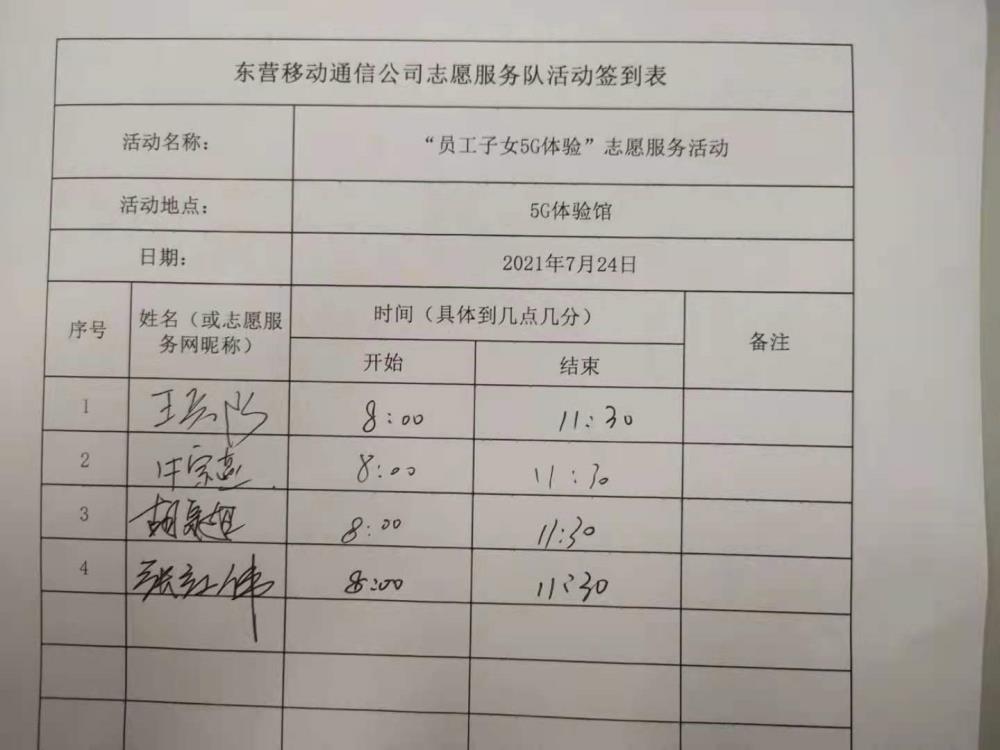 东营移动通信公司志愿服务队活动签到表
活动名称：
“员工子女5G体验”志愿服务活动
活动地点：
5G体验馆
日期：
2021年7月24日
序号
姓名（或志愿服
务网昵称）
时间（具体到几点几分）
备注
开始
结束
1
8:00
11:30
2
8:00
11:30
3
8:00
11:30
4
张红伟
8:00
11:30